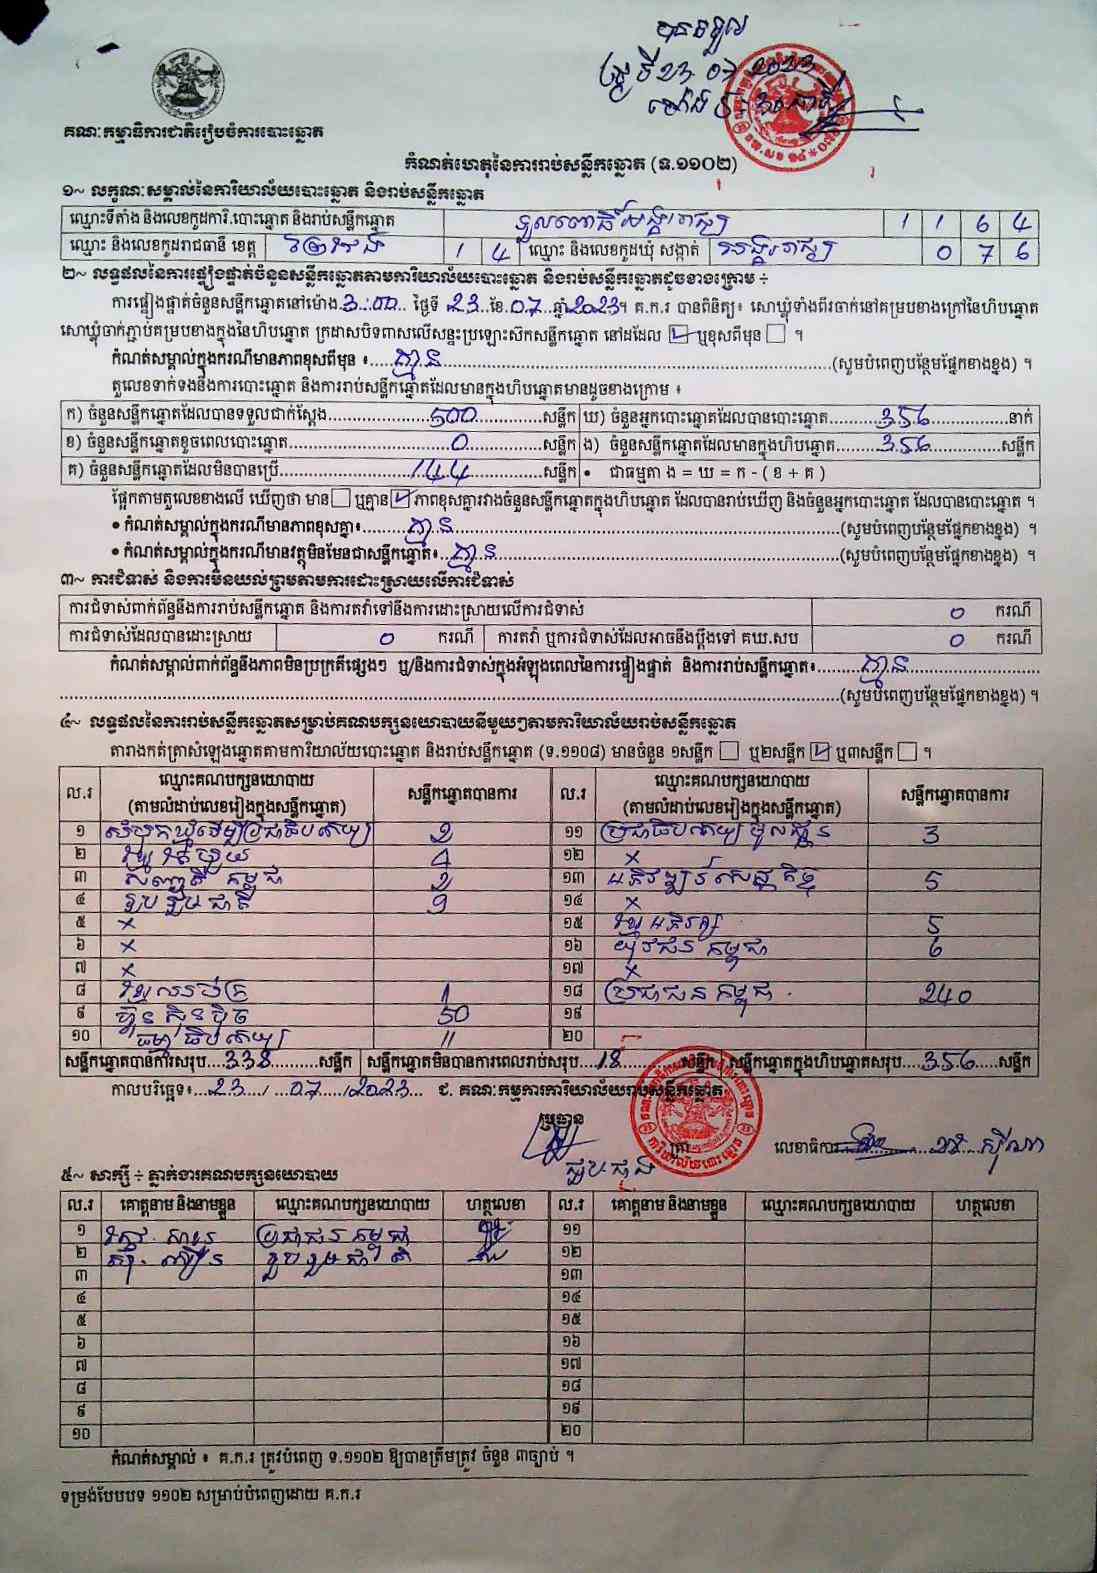 បានទទួល
គណៈកម្មាធិការជាតិរៀបចំការបោះឆ្នោត
កំណត់ហេតុនៃការរាប់សន្លឹកឆ្នោត (ទ.១១០២)
១~ លក្ខណៈសម្គាល់នៃការិយាល័យបោះឆ្នោត និងរាប់សន្លឹកឆ្នោត
ឈ្មោះទីតាំង និងលេខកូដការិ.បោះឆ្នោត និងរាប់សន្លឹកឆ្នោត 1 1 6 4
ឈ្មោះ និងលេខកូដរាជធានី ខេត្ត ព្រៃវែង 1 4 ឈ្មោះ និងលេខកូដឃុំ សង្កាត់ 0 7 6
២~ លទ្ធផលនៃការផ្ទៀងផ្ទាត់ចំនួនសន្លឹកឆ្នោតតាមការិយាល័យបោះឆ្នោត និងរាប់សន្លឹកឆ្នោតដូចខាងក្រោម ÷
ការផ្ទៀងផ្ទាត់ចំនួនសន្លឹកឆ្នោតនៅម៉ោង 3:00 ថ្ងៃទី 23 ខែ 07 ឆ្នាំ 2023។ គ.ក.រ បានពិនិត្យ៖ សោឃ្លុំទាំងពីរចាក់នៅគម្របខាងក្រៅនៃហិបឆ្នោត
សោឃ្លុំចាក់ភ្ជាប់គម្របខាងក្នុងនៃហិបឆ្នោត ក្រដាសបិទពាសលើសន្ទះប្រឡោះស៊កសន្លឹកឆ្នោត នៅដដែល ☑ ឬខុសពីមុន ☐ ។
កំណត់សម្គាល់ក្នុងករណីមានភាពខុសពីមុន ៖ គ្មាន (សូមបំពេញបន្ថែមផ្នែកខាងខ្នង) ។
តួលេខទាក់ទងនឹងការបោះឆ្នោត និងការរាប់សន្លឹកឆ្នោតដែលមានក្នុងហិបឆ្នោតមានដូចខាងក្រោម ៖
ក) ចំនួនសន្លឹកឆ្នោតដែលបានទទួលជាក់ស្តែង 500 សន្លឹក ឃ) ចំនួនអ្នកបោះឆ្នោតដែលបានបោះឆ្នោត 356 នាក់
ខ) ចំនួនសន្លឹកឆ្នោតខូចពេលបោះឆ្នោត 0 សន្លឹក ង) ចំនួនសន្លឹកឆ្នោតដែលមានក្នុងហិបឆ្នោត 356 សន្លឹក
គ) ចំនួនសន្លឹកឆ្នោតដែលមិនបានប្រើ 144 សន្លឹក • ជាធម្មតា ង = ឃ = ក - ( ខ + គ )
ផ្អែកតាមតួលេខខាងលើ ឃើញថា មាន ☐ ឬគ្មាន ☑ ភាពខុសគ្នារវាងចំនួនសន្លឹកឆ្នោតក្នុងហិបឆ្នោត ដែលបានរាប់ឃើញ និងចំនួនអ្នកបោះឆ្នោត ដែលបានបោះឆ្នោត ។
• កំណត់សម្គាល់ក្នុងករណីមានភាពខុសគ្នា៖ គ្មាន (សូមបំពេញបន្ថែមផ្នែកខាងខ្នង) ។
• កំណត់សម្គាល់ក្នុងករណីមានវត្ថុមិនមែនជាសន្លឹកឆ្នោត៖ គ្មាន (សូមបំពេញបន្ថែមផ្នែកខាងខ្នង) ។
៣~ ការជំទាស់ និងការមិនយល់ព្រមតាមការដោះស្រាយលើការជំទាស់
ការជំទាស់ពាក់ព័ន្ធនឹងការរាប់សន្លឹកឆ្នោត និងការតវ៉ាទៅនឹងការដោះស្រាយលើការជំទាស់ 0 ករណី
ការជំទាស់ដែលបានដោះស្រាយ 0 ករណី ការតវ៉ា ឬការជំទាស់ដែលអាចនឹងប្តឹងទៅ គឃ.សប 0 ករណី
កំណត់សម្គាល់ពាក់ព័ន្ធនឹងភាពមិនប្រក្រតីផ្សេងៗ ឬ/និងការជំទាស់ក្នុងអំឡុងពេលនៃការផ្ទៀងផ្ទាត់ និងការរាប់សន្លឹកឆ្នោត៖ គ្មាន
(សូមបំពេញបន្ថែមផ្នែកខាងខ្នង) ។
៤~ លទ្ធផលនៃការរាប់សន្លឹកឆ្នោតសម្រាប់គណបក្សនយោបាយនីមួយៗតាមការិយាល័យរាប់សន្លឹកឆ្នោត
តារាងកត់ត្រាសំឡេងឆ្នោតតាមការិយាល័យបោះឆ្នោត និងរាប់សន្លឹកឆ្នោត (ទ.១១០៨) មានចំនួន ១សន្លឹក ☐ ឬ២សន្លឹក ☑ ឬ៣សន្លឹក ☐ ។
ល.រ ឈ្មោះគណបក្សនយោបាយ (តាមលំដាប់លេខរៀងក្នុងសន្លឹកឆ្នោត) សន្លឹកឆ្នោតបានការ ល.រ ឈ្មោះគណបក្សនយោបាយ (តាមលំដាប់លេខរៀងក្នុងសន្លឹកឆ្នោត) សន្លឹកឆ្នោតបានការ
១ សំបុកឃ្មុំដើម្បីប្រជាធិបតេយ្យ 2 ១១ ប្រជាធិបតេយ្យមូលដ្ឋាន 3
២ ខ្មែររួបរួម 4 ១២ x
៣ សញ្ជាតិកម្ពុជា 2 ១៣ អភិវឌ្ឍន៍សេដ្ឋកិច្ច 5
៤ ខ្មែររួបរួមជាតិ 9 ១៤ x
៥ x ១៥ ខ្មែរអភិរក្ស 5
៦ x ១៦ យុវជនកម្ពុជា 6
៧ x ១៧ x
៨ 1 ១៨ ប្រជាជនកម្ពុជា 240
៩ ហ៊្វុនស៊ិនប៉ិច 50 ១៩
១០ ធម្មាធិបតេយ្យ 11 ២០
សន្លឹកឆ្នោតបានការសរុប 338 សន្លឹក សន្លឹកឆ្នោតមិនបានការពេលរាប់សរុប 18 សន្លឹក សន្លឹកឆ្នោតក្នុងហិបឆ្នោតសរុប 356 សន្លឹក
កាលបរិច្ឆេទ៖ 23 / 07 / 2023 ជ. គណៈកម្មការការិយាល័យរាប់សន្លឹកឆ្នោត
ប្រធាន
លេខាធិការ
៥~ សាក្សី ÷ ភ្នាក់ងារគណបក្សនយោបាយ
ល.រ គោត្តនាម និងនាមខ្លួន ឈ្មោះគណបក្សនយោបាយ ហត្ថលេខា ល.រ គោត្តនាម និងនាមខ្លួន ឈ្មោះគណបក្សនយោបាយ ហត្ថលេខា
១ ប្រជាជនកម្ពុជា ១១
២ ១២
៣ ១៣
៤ ១៤
៥ ១៥
៦ ១៦
៧ ១៧
៨ ១៨
៩ ១៩
១០ ២០
កំណត់សម្គាល់ ៖ គ.ក.រ ត្រូវបំពេញ ទ.១១០២ ឱ្យបានត្រឹមត្រូវ ចំនួន ៣ច្បាប់ ។
ទម្រង់បែបបទ ១១០២ សម្រាប់បំពេញដោយ គ.ក.រ